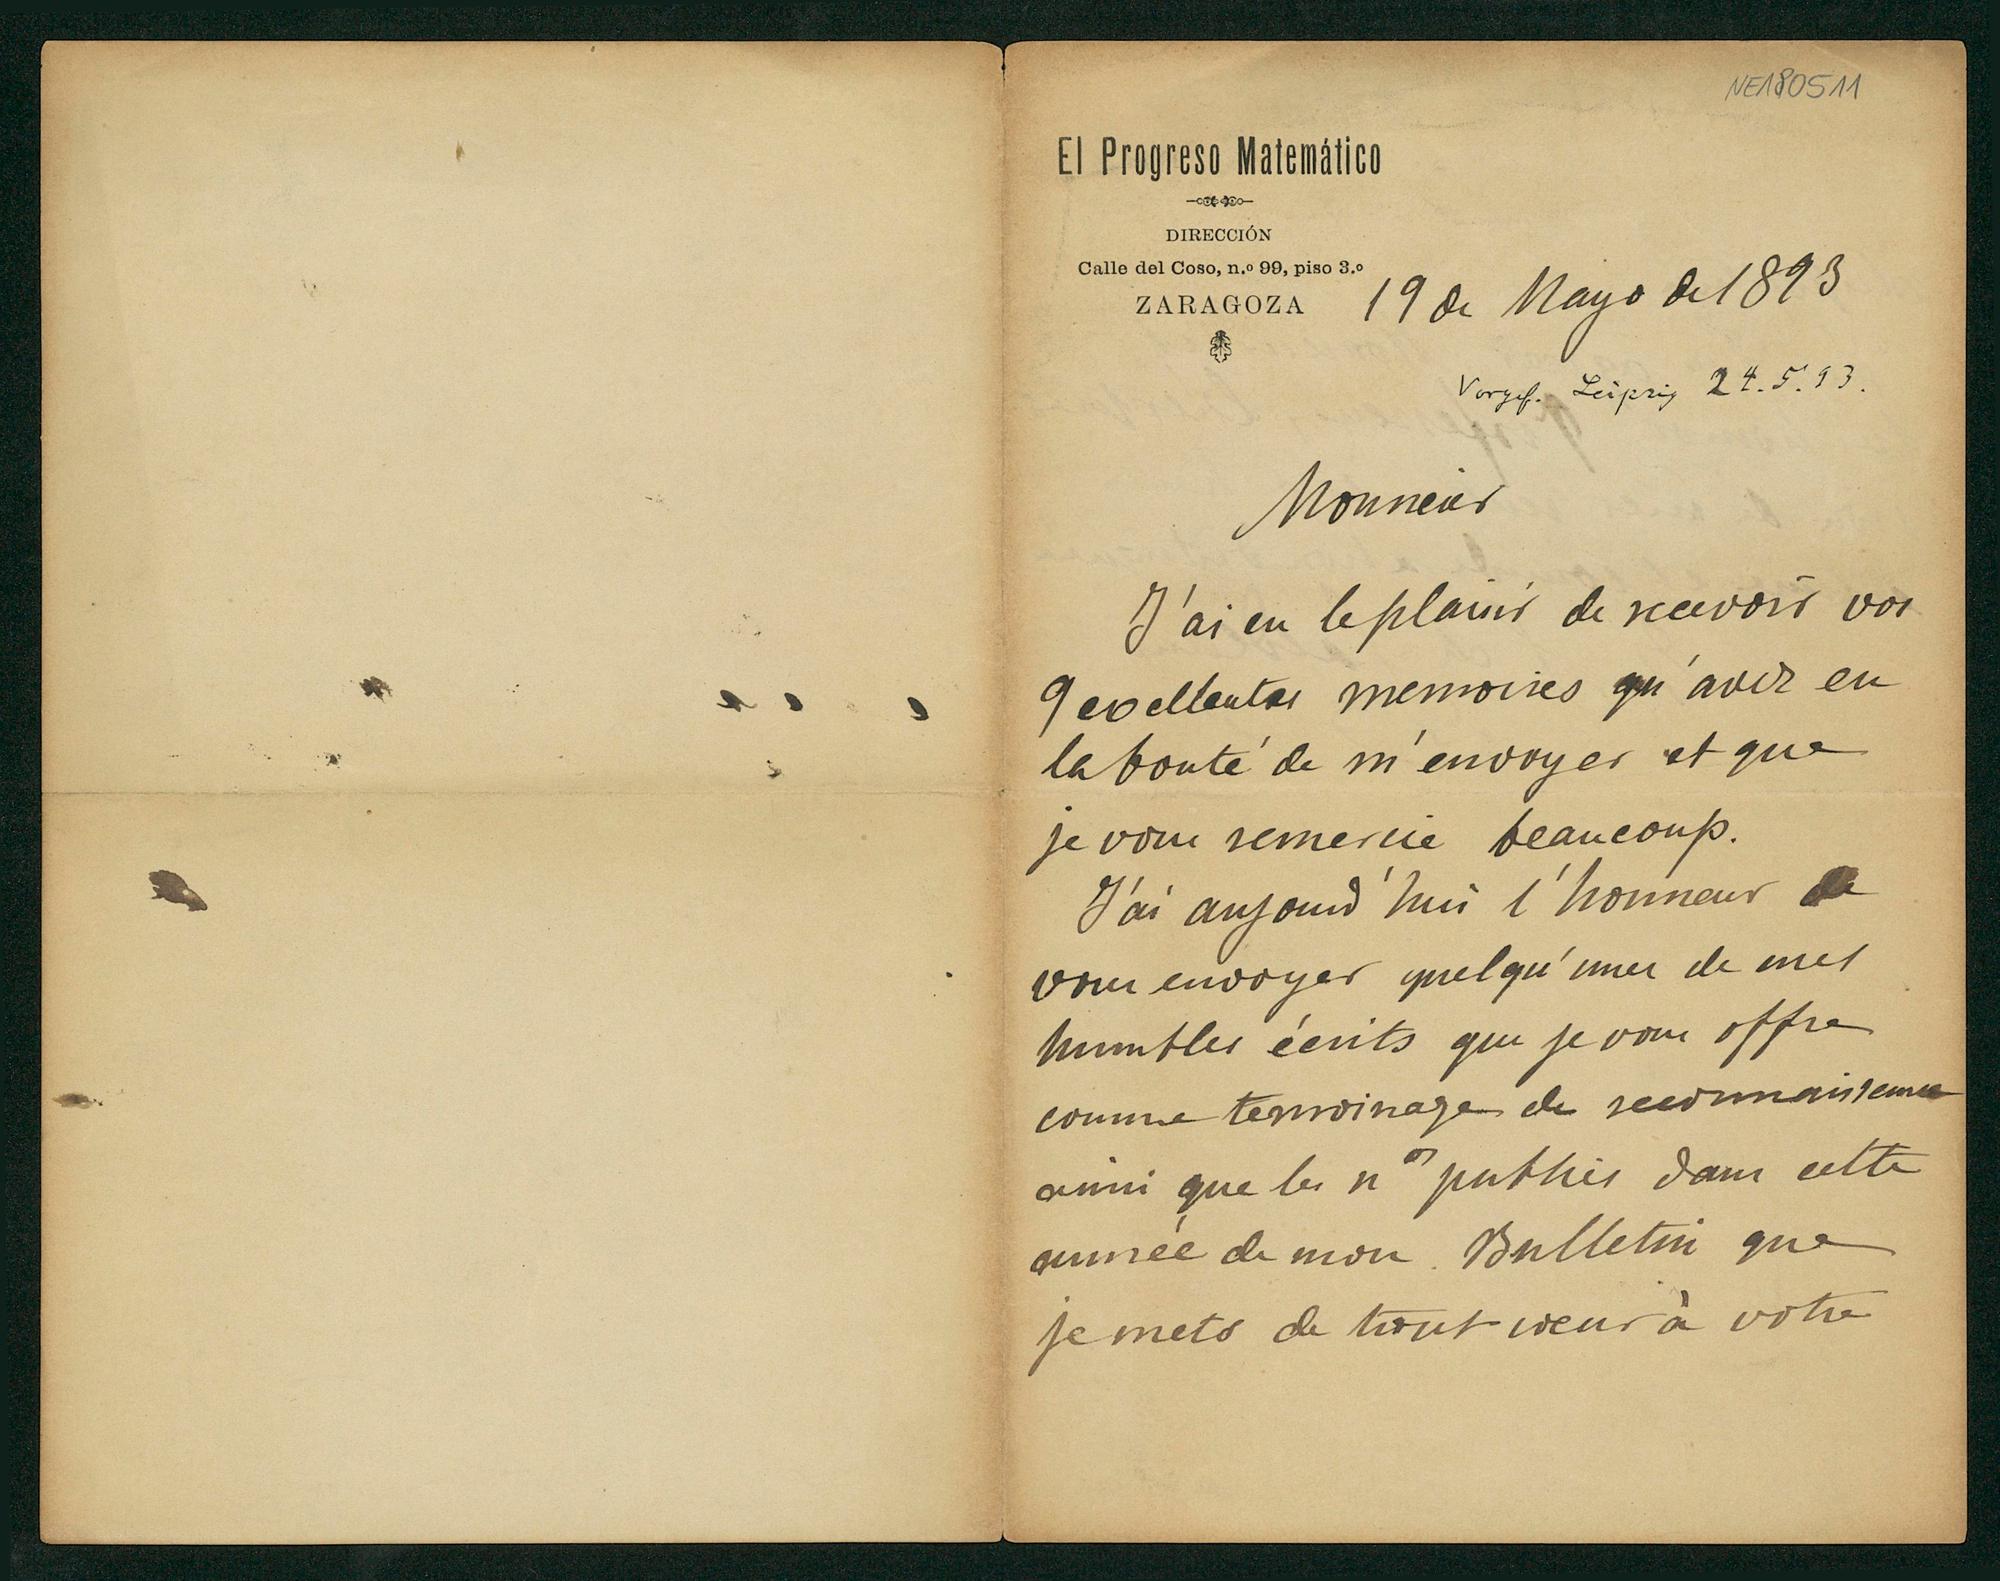 NE180511
El Progreso Matemático
DIRECCIÓN
Calle del Coso, n.º 99, piso 3.º
ZARAGOZA
19 de Mayo de 1893
Leipzig 24.5.93.
Monsieur
J'ai eu le plaisir de recevoir vos
9 excellentes memoires qu'avez eu
la bonté de m'envoyer et que
je vous remercie beaucoup.
J'ai aujourd'hui l'honneur de
vous envoyer quelqu'unes de mes
humbles écrits que je vous offre
comme temoinage de reconnaissance
ainsi que les nos publiés dans cette
année de mon Bulletin que
je mets de tout coeur à votre